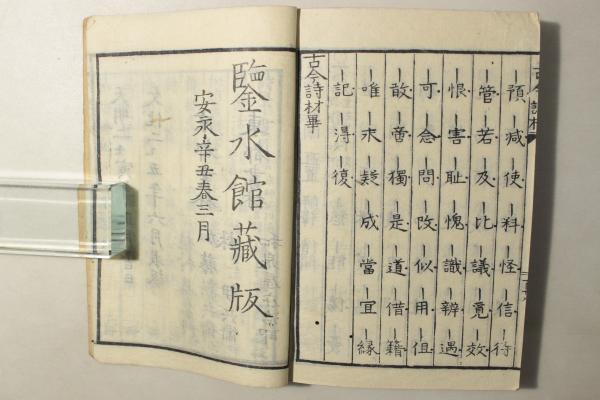 古今詩材
預 減 使 料 怪 信 行
管 若 及 比 議 覓 效
恨 害 恥 愧 識 辨 遇
可 念 問 改 似 用 但
敢 嘗 獨 是 道 借 籍
唯 求 難 成 當 宜 縁
記 得 復
古今詩材畢
鑒水館藏版
安永辛丑春三月